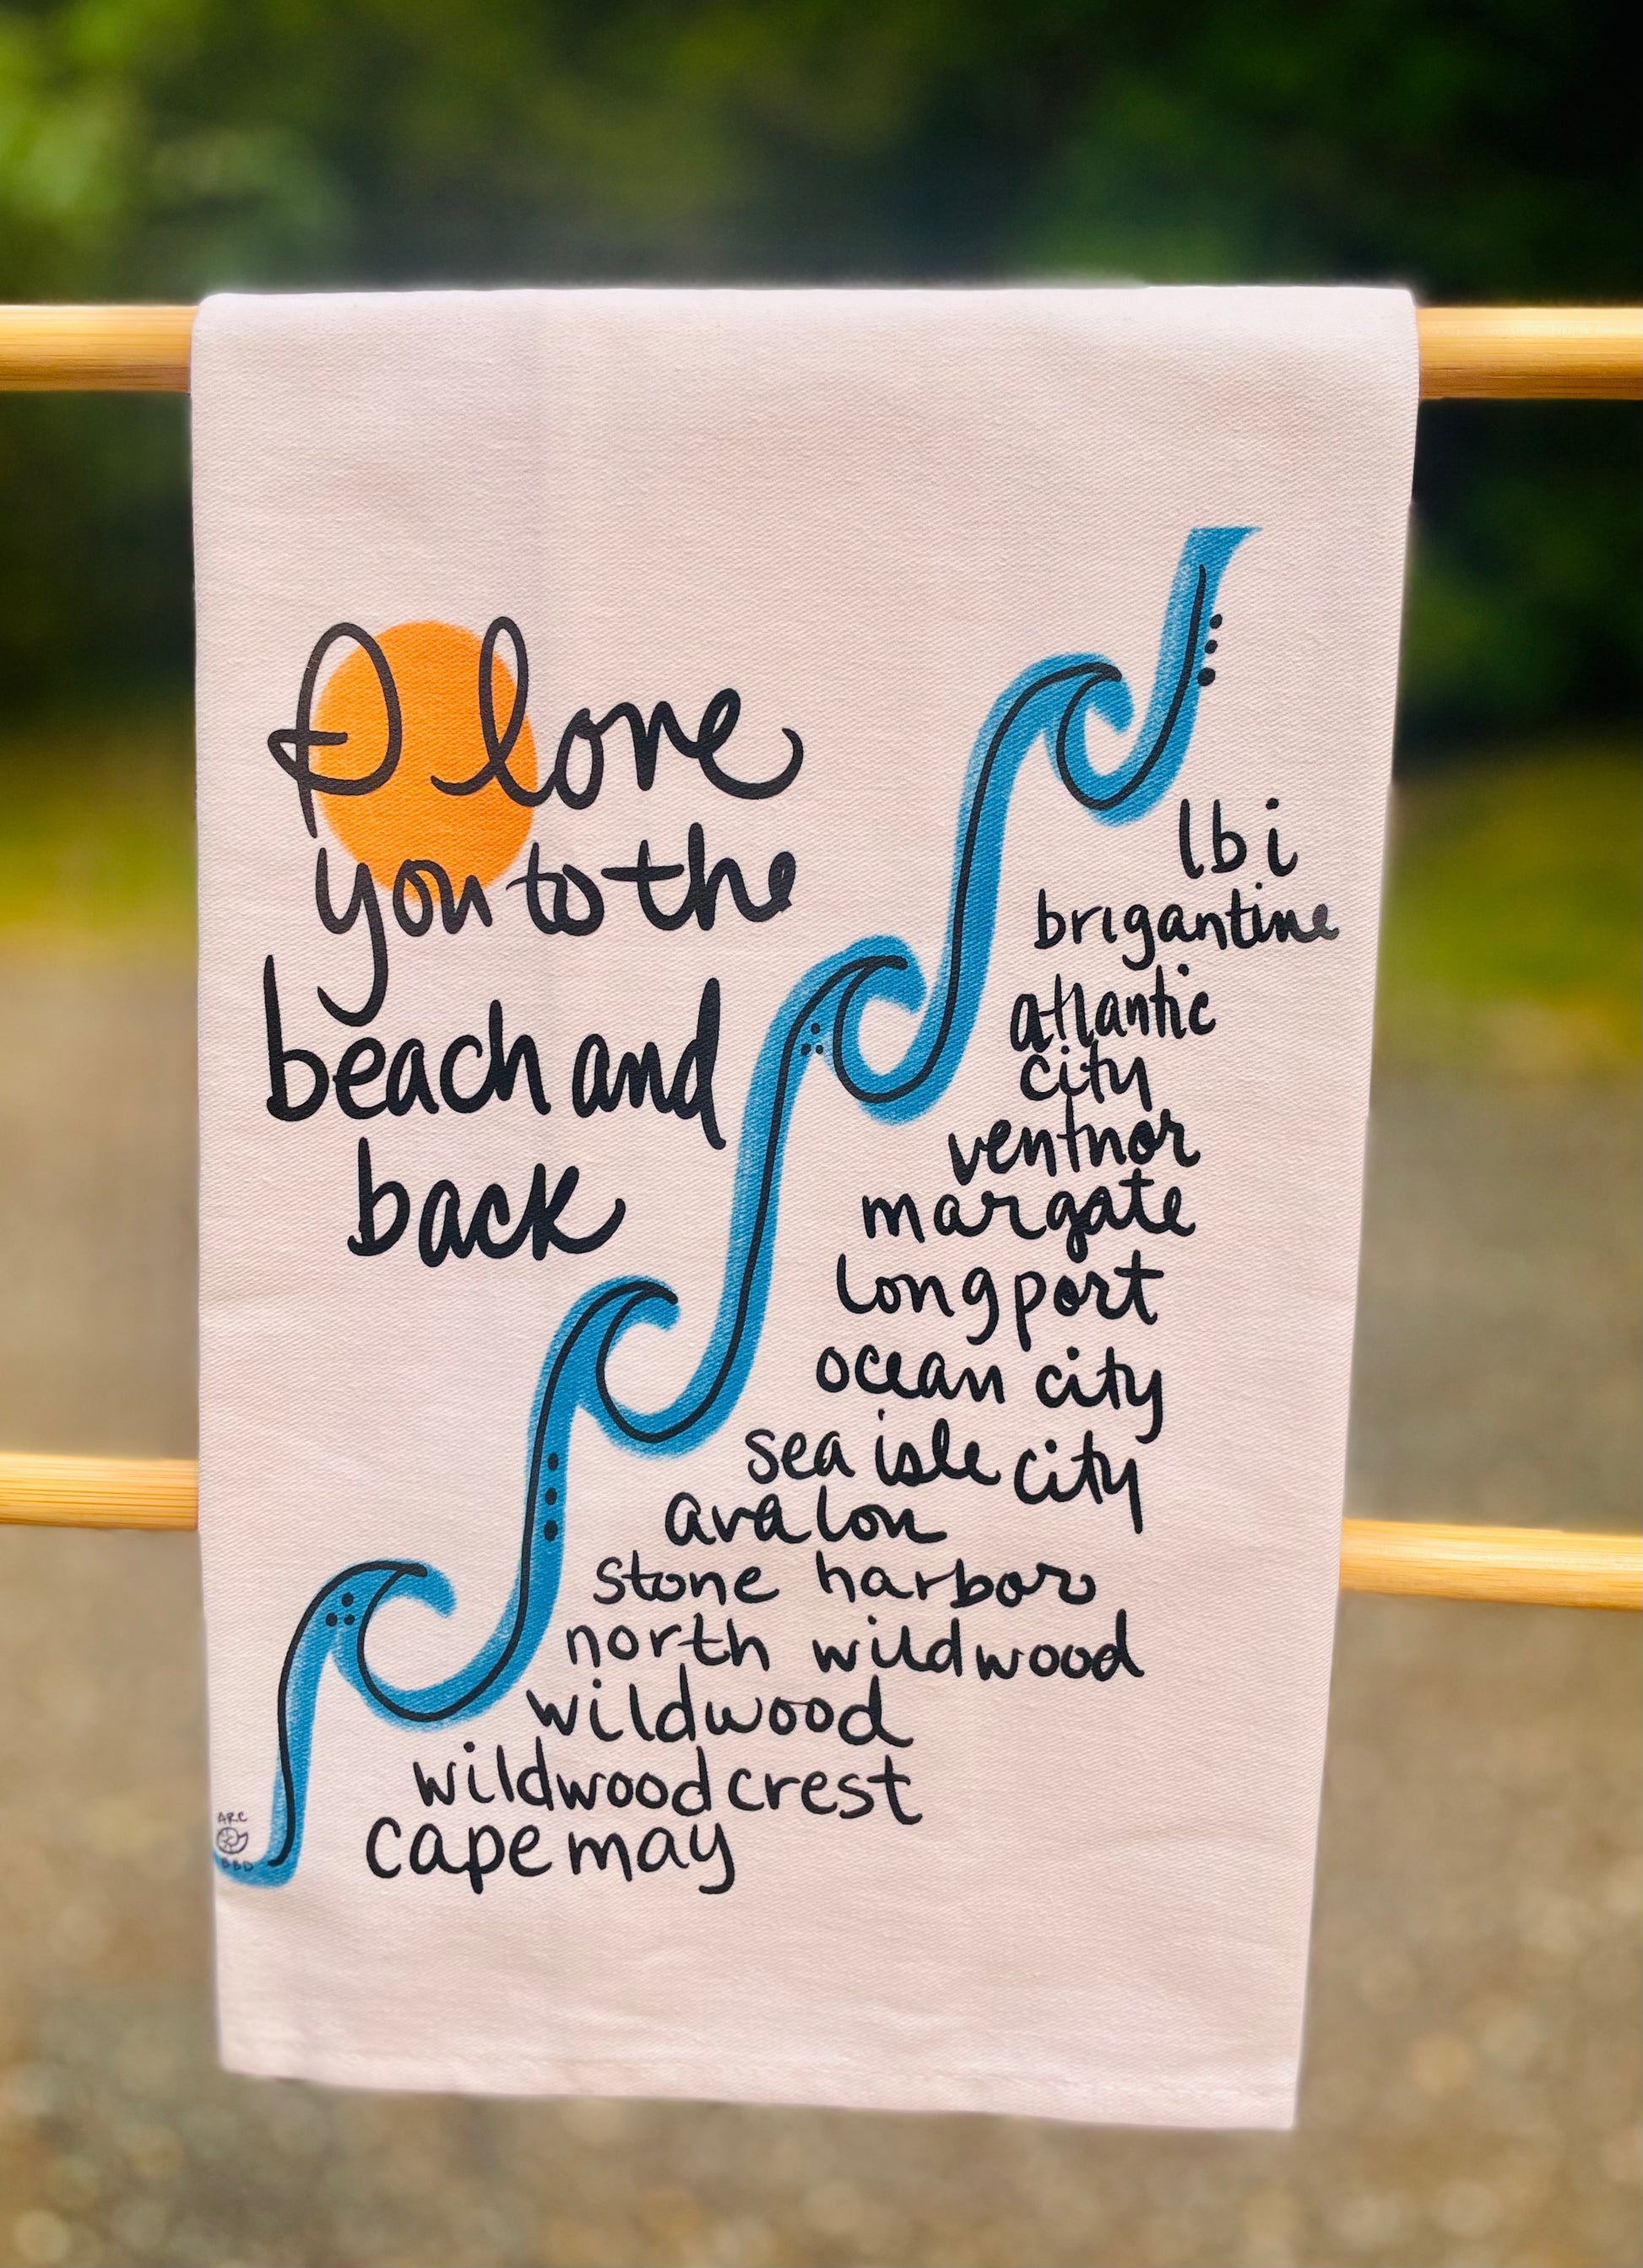 I love
you to the
beach and
back
lbi
brigantine
atlantic
city
ventnor
margate
longport
ocean city
sea isle city
avalon
stone harbor
north wildwood
wildwood
wildwood crest
cape may
ARC
BBD